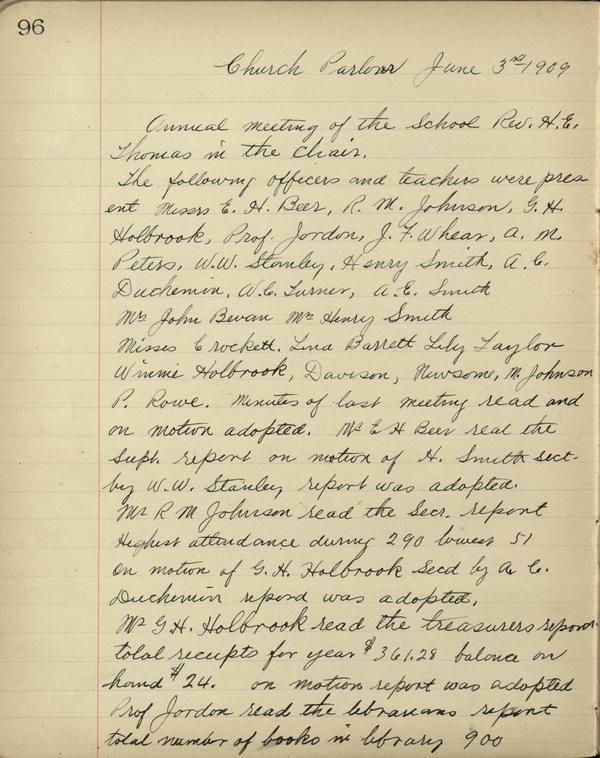 96
Church Parlour June 3rd 1909
Annual meeting of the School Rev. H. E.
Thomas in the chair.
The following officers and teachers were pres
ent Messrs E. H. Beer, R. M. Johnson, G. H.
Holbrook, Prof. Jordon, J. F. Whear, A. M.
Peters, W. W. Stanley, Henry Smith, A. C.
Duchemin, W. C. Turner, A. E. Smith
Mrs John Bevan Mrs Henry Smith
Misses Crockett, Lina Barrett Lily Taylor
Winnie Holbrook, Davison, Newsome, M. Johnson
P. Rowe. Minutes of last meeting read and
on motion adopted. Mr E H Beer read the
Supt. report on motion of H. Smith sect.
by W. W. Stanley report was adopted.
Mr R M Johnson read the Secr. report
Highest attendance during 290 lowest 51
on motion of G. H. Holbrook Secd by A. C.
Duchemin repord was adopted,
Mr G H. Holbrook read the treasurers report
total receipts for year $361.28 balance on
hand $24. on motion report was adopted
Prof Jordon read the librarians report
total number of books in library 900